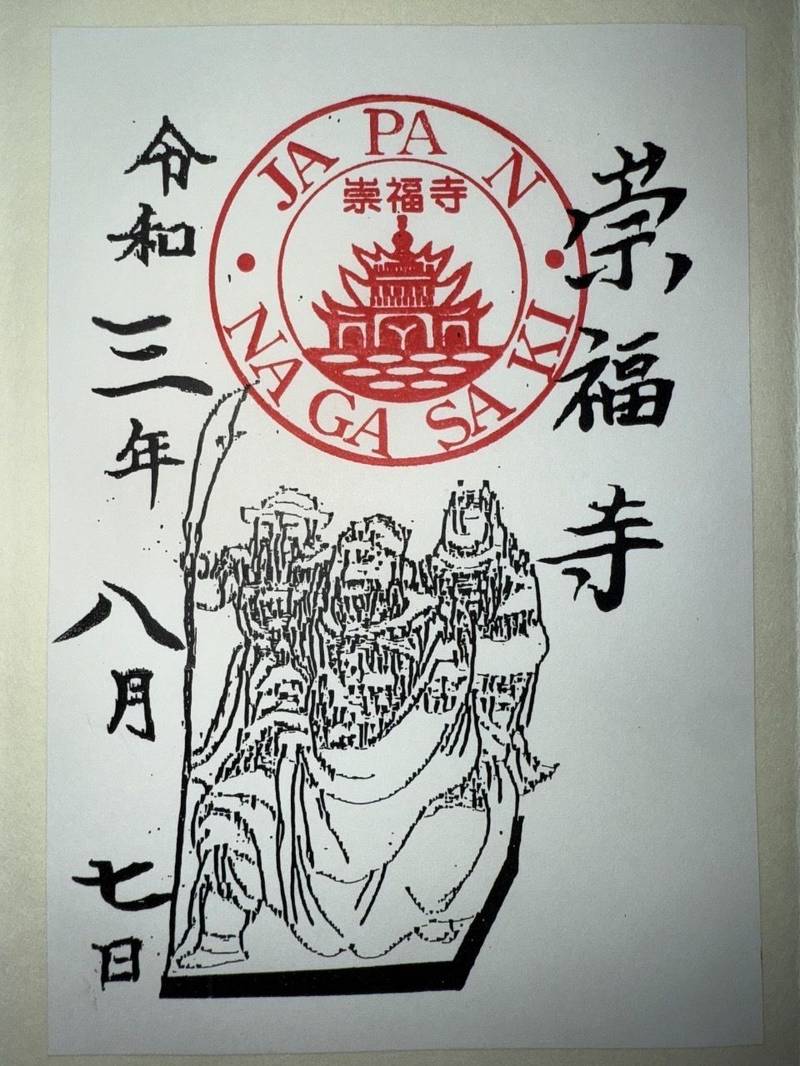 崇福寺
JAPAN
崇福寺
NAGASAKI
令和三年八月七日